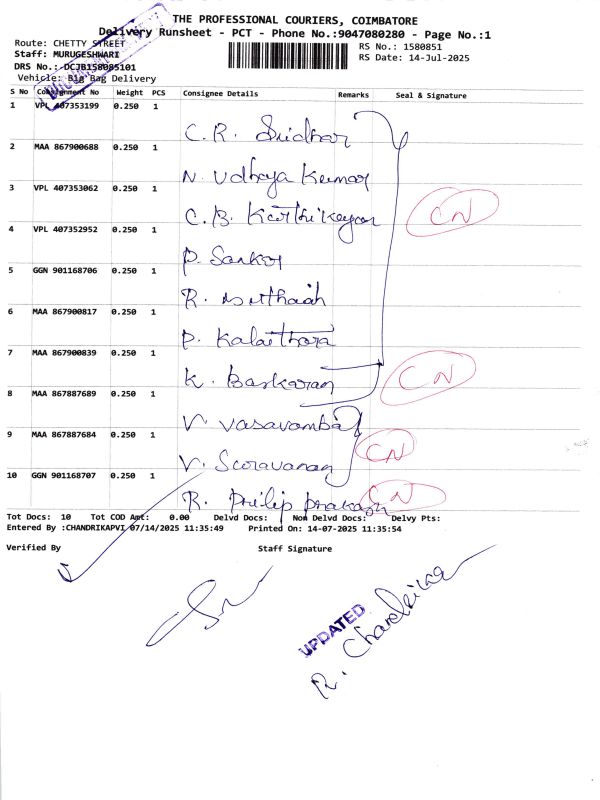 THE PROFESSIONAL COURIERS, COIMBATORE
Delivery Runsheet - PCT - Phone No.:9047080280 - Page No.:1
Route: CHETTY STREET
RS No.: 1580851
Staff: MURUGESHWARI
RS Date: 14-Jul-2025
DRS No.:-DCJB158085101
Vehicle: Big Bag Delivery
S No Consignment No Weight PCS Consignee Details Remarks Seal & Signature
1 VPL 407353199 0.250 1
C. R. Sridhar
2 MAA 867900688 0.250 1
N. Udhaya Kumar
3 VPL 407353062 0.250 1
C. B. Karthikeyan CN
4 VPL 407352952 0.250 1
P. Sankar
5 GGN 901168706 0.250 1
R.
6 MAA 867900817 0.250 1
P.
7 MAA 867900839 0.250 1
K. Baskaran CN
8 MAA 867887689 0.250 1
V.
9 MAA 867887684 0.250 1 CN
V. Saravanan
10 GGN 901168707 0.250 1
R. Philip Prakash CN
Tot Docs: 10 Tot COD Amt: 0.00 Delvd Docs: Non Delvd Docs: Delvy Pts:
Entered By :CHANDRIKAPVI 07/14/2025 11:35:49 Printed On: 14-07-2025 11:35:54
Verified By Staff Signature
UPDATED
R. Chandrika